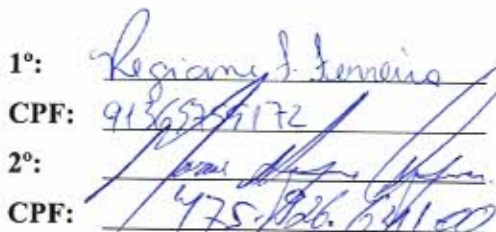 1º: Regiane F. Ferreira
CPF: 91365755172
2º:
CPF: 475.926.621-00